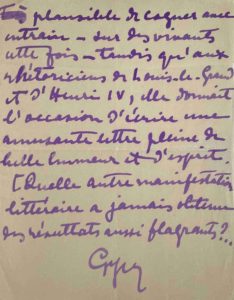 plausible de cogner avec
entrain – sur des vivants
cette fois – tandis qu'aux
rhétoriciens de Louis-le-Grand
et d'Henri IV, elle donnait
l'occasion d'écrire une
amusante lettre pleine de
belle humeur et d'esprit.
[Quelle autre manifestation
littéraire a jamais obtenu
des résultats aussi flagrants ?...